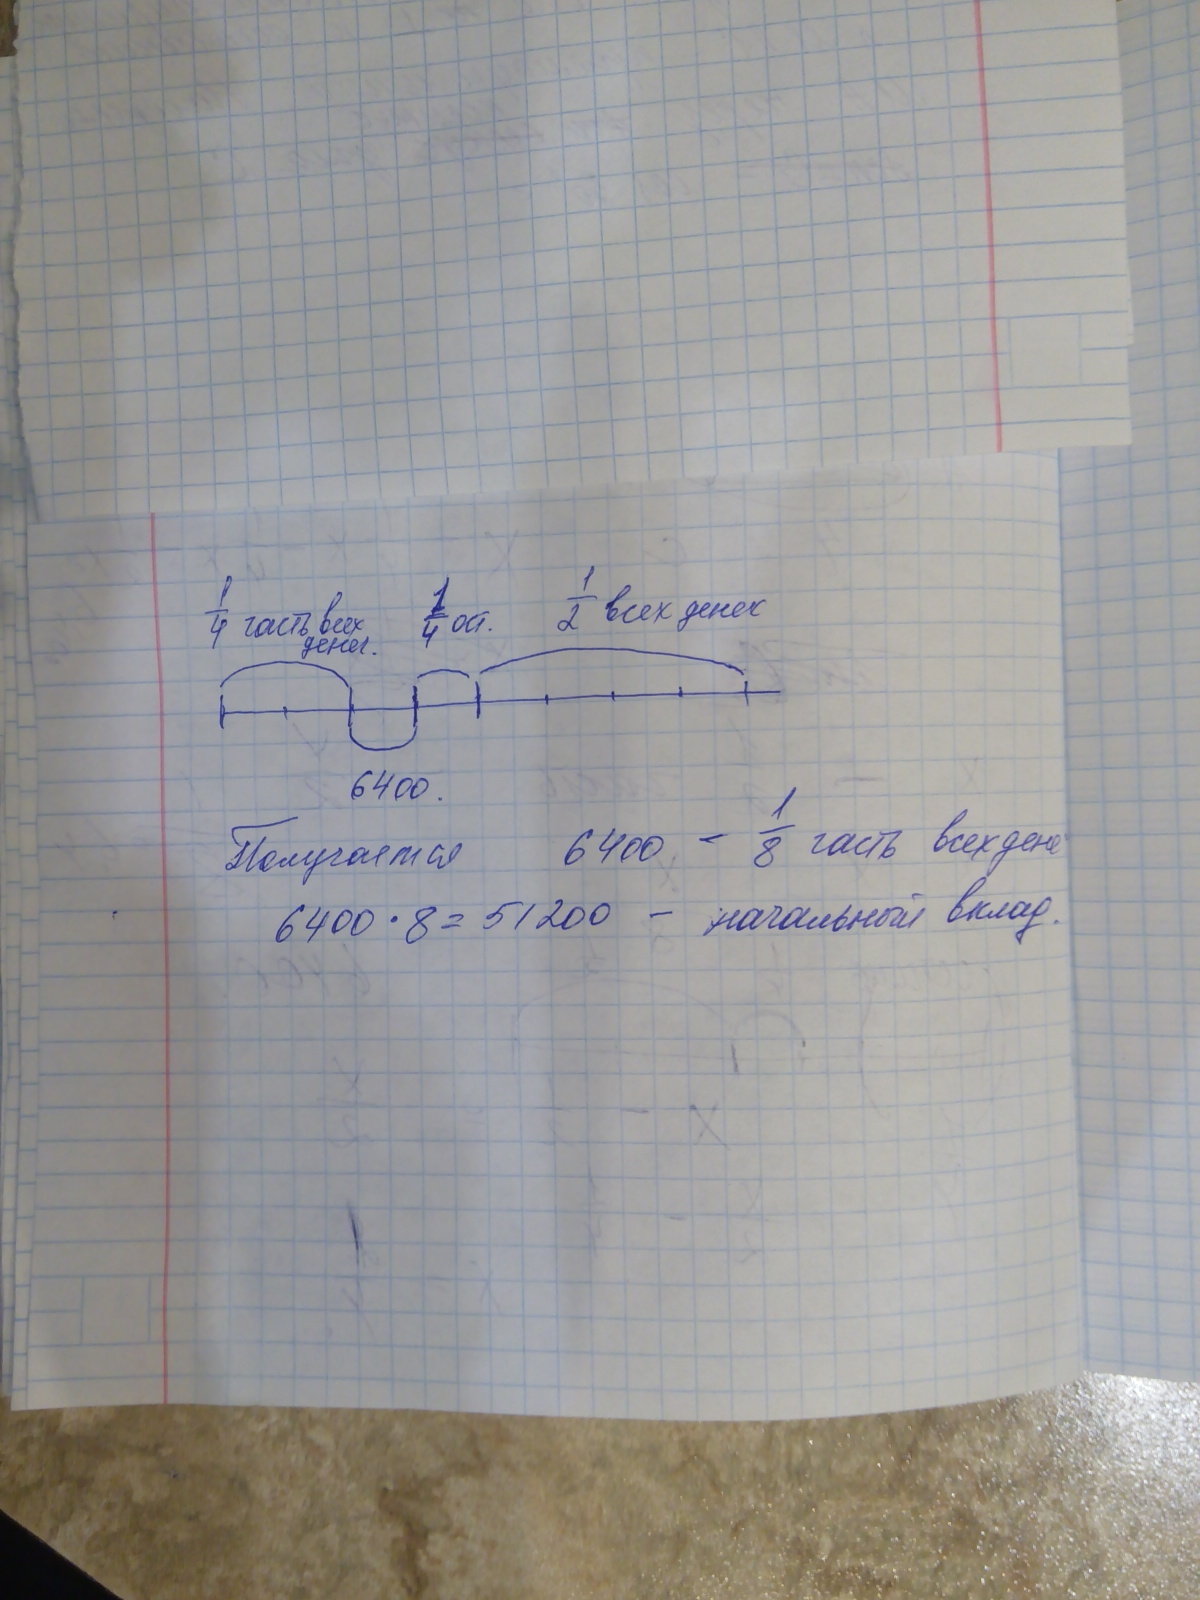 1/4 часть всех денег. 1/4 ост. 1/2 всех денег
6400.
Получается 6400 - 1/8 часть всех дене
6400 · 8 = 51200 - начальный вклад.